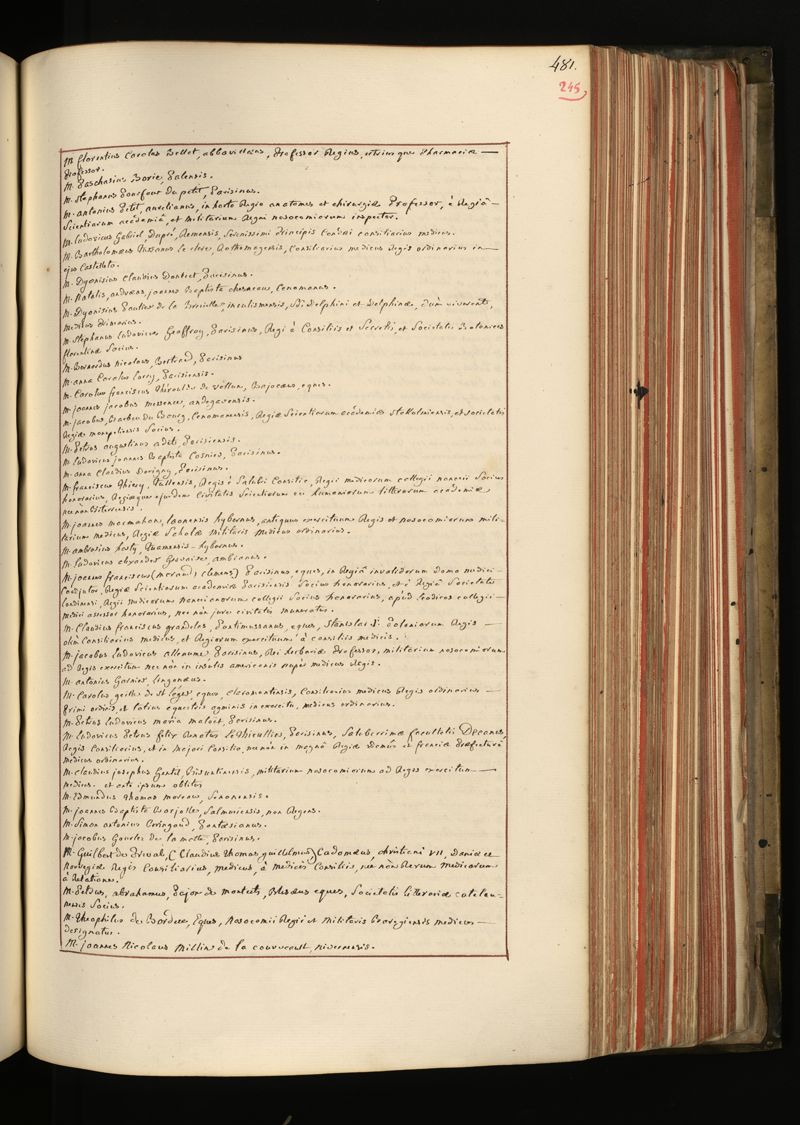 481.
245
M. florentius Carolus Bellot, abbavillæus, Professor Regius, utriusque Pharmaciæ —
Professor.
M. Paschasius Borie, Parisiensis.
M. Stephanus Pourfour du petit, Parisinus.
M. antonius Petit, aurelianus, in horto Regio anatomes et chirurgiæ Professor, è Regiâ —
Scientiarum academiâ, et Militarium Regni nosocomiorum inspector.
M. Ludovicus Gabriel, Dupré, Remensis, Serenissimi Principis Condæi consiliarius medicus.
M. Bartholomæus Tussanus le clerc, Rothomagensis, Consiliarius medicus Regis ordinarius in —
ejus Castelleto.
M. Dyonisius Claudius Doulcet, Parisinus.
M. Natalis, andræas, joannes Baptiste chesneau, Cenomanus.
M. Dyonisius Gaultier de la Breuille, inculismensis, DD. Delphini et Delphinæ, Dùm viverent,
Medicus Primarius.
M. Stephanus Ludovicus Geoffroy, Parisinus, Regi à Consiliis et Secretis, et Societatis Botanicæ
florentinæ Socius.
M. Bernardus nicolaus, Bertrand, Parisinus
M. anna Carolus Lorry, Parisiensis.
M. Carolus franciscus Théroulde de vallun, Bajocæus, eques.
M. joannes jacobus messence, andegavensis.
M. jacobus, Barbeu du Bourg, Cenomanensis, Regiæ Scientiarum academiæ Stokolmiensis, et Societatis
Regiæ monspeliensis Socius.
M. Petrus augustinus adet, Parisiensis.
M. Ludovicus joannes Baptiste Cosnier, Parisinus.
M. anna Claudius Dorigny, Parisinus.
M. franciscus Thiery, Tullensis, Regis è Salubri Consilio, Regii medicorum collegii nanceii Socius
honorarius, Regiæque ejusdem Civitatis Scientiarum ac humaniorum litterarum academiæ
nec nòn
M. joannes macmahon, laonensis hybernus, antiquus exercituum Regis et nosocomiorum mili-
tarium medicus, Regiæ Scholæ Militaris Medicus ordinarius.
M. ambrosius hosty, Tuamensis-hybernus.
M. ludovicus alexander Gervaise, ambianus.
M. joannes franciscus (morand) clemens) Parisinus eques, in Regiâ invalidorum Domo medici —
Coadjutor, Regiæ Scientiarum academiæ Parisiensis Socius honorarius, et è Regiâ Societate
Londinensi, Regii medicorum Nanceianorum collegii Socius honorarius, apud Leodicos collegii —
medici assessor honorarius, nec non jure civitatis muneratus.
M. Claudius franciscus grandclas, Pontimussanus, eques, Stanislai Ii. Poloniarum Regis —
olim Consiliarius medicus, et Regiorum exercituum à consiliis medicis.
M. jacobus Ludovicus alleaume Parisinus, Rei herbariæ Professor, militarium nosocomiorum
ad Regis exercitum nec nòn in insulis americanis nuper medicus Regis.
M. antonius Garnier, lingonæus.
M. Carolus, geille de St leger, eques, claromontensis, Consiliarius medicus Regis ordinarius —
Primi ordinis, et totius equestris agminis in exercitu, medicus ordinarius.
M. Petrus Ludovicus maria maloet, Parisinus.
M. Ludovicus Petrus felix Renatus Le Thieullier, Parisinus, Saluberrimæ facultatis Decanus,
Regis Consiliarius, et in majori Consilio, nec non in magnâ Regiæ Domûs et franciæ Præfecturâ
medicus ordinarius.
M. Claudius josephus Gentil Vesuntinensis, militarium nosocomiorum ad Regis exercitum —
medicus. et arte ipsum oblitus
M. Edmundus Thomas moreau, Senonensis.
M. joannes Baptiste Boyrjolles, Salmuriensis, non Regens.
M. Simon antonius Bringaud, Pontæsianus.
M. jacobus Gourlez de la motte, Parisinus.
M. Guilbert de Préval, (Claudius Thomas guillelmus) Cadomæus, christiani VII, Daniæ et
Norvegiæ Regis Consiliarius, medicus, à medicis Consiliis, nec nòn Rerum medicarum
à Relatione.
M. Petrus, abrahamus, Pajon de moncets, Blesæus eques, Societatis litterariæ catalau-
nensis Socius.
M. Theophilus de Bordeu, Eques, Nosocomii Regii et militaris Baregiensis medicus —
designatus.
M. joannes Nicolaus Millin de la courvault, nivernensis.